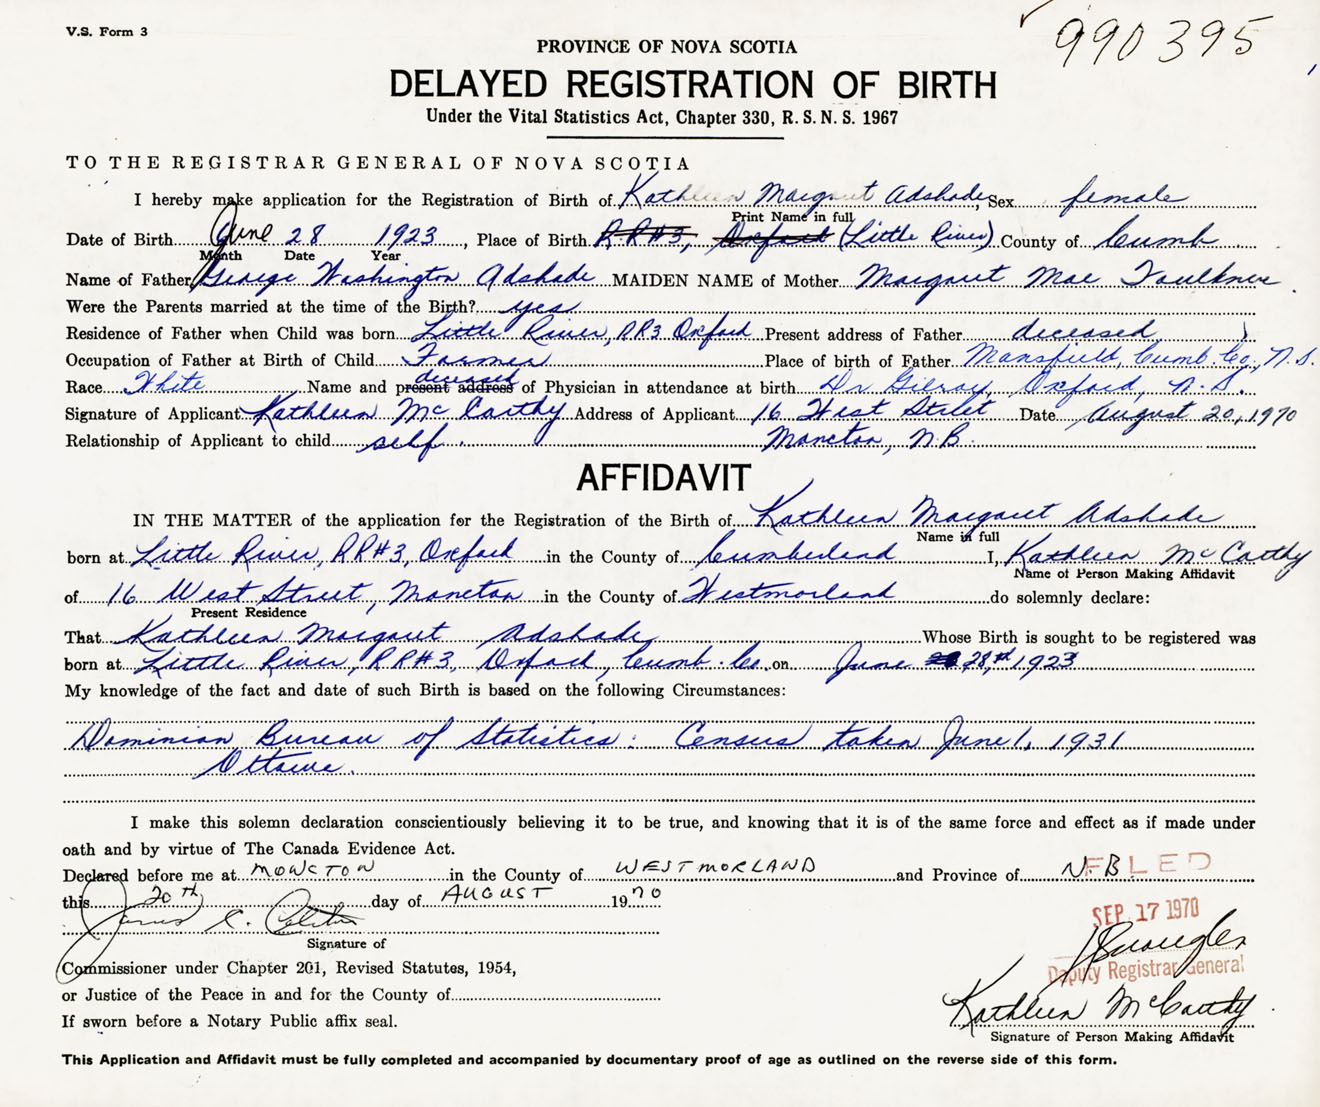 V.S. Form 3
990395
PROVINCE OF NOVA SCOTIA
DELAYED REGISTRATION OF BIRTH
Under the Vital Statistics Act, Chapter 330, R. S. N. S. 1967
TO THE REGISTRAR GENERAL OF NOVA SCOTIA
I hereby make application for the Registration of Birth of Kathleen Margaret Adshade, Sex female
Print Name in full
Date of Birth June 28 1923, Place of Birth R.R#3, Oxford (Little River) County of Cumb
Month Date Year
Name of Father George Washington Adshade MAIDEN NAME of Mother Margaret Mae Faulkner.
Were the Parents married at the time of the Birth? yes
Residence of Father when Child was born Little River, RR3 Oxford Present address of Father deceased
Occupation of Father at Birth of Child Farmer Place of birth of Father Mansfield, Cumb. Co., N.S.
deceased
Race White Name and present address of Physician in attendance at birth Dr Gilroy, Oxford, N.S.
Signature of Applicant Kathleen McCarthy Address of Applicant 16 West Street Date August 20, 1970
Relationship of Applicant to child self. Moncton, N.B.
AFFIDAVIT
IN THE MATTER of the application for the Registration of the Birth of Kathleen Margaret Adshade
Name in full
born at Little River, RR#3, Oxford in the County of Cumberland I, Kathleen McCarthy
Name of Person Making Affidavit
of 16 West Street, Moncton in the County of Westmorland do solemnly declare:
Present Residence
That Kathleen Margaret Adshade Whose Birth is sought to be registered was
born at Little River, RR#3, Oxford, Cumb. Co. on June 28th, 1923
My knowledge of the fact and date of such Birth is based on the following Circumstances:
Dominion Bureau of Statistics: Census taken June 1, 1931
Ottawa.
I make this solemn declaration conscientiously believing it to be true, and knowing that it is of the same force and effect as if made under
oath and by virtue of The Canada Evidence Act.
Declared before me at MONCTON in the County of WESTMORLAND and Province of N.B
FILED
this 20th day of AUGUST 1970
SEP 17 1970
James C.
Signature of
Deputy Registrar General
Commissioner under Chapter 201, Revised Statutes, 1954,
or Justice of the Peace in and for the County of
Kathleen McCarthy
If sworn before a Notary Public affix seal.
Signature of Person Making Affidavit
This Application and Affidavit must be fully completed and accompanied by documentary proof of age as outlined on the reverse side of this form.